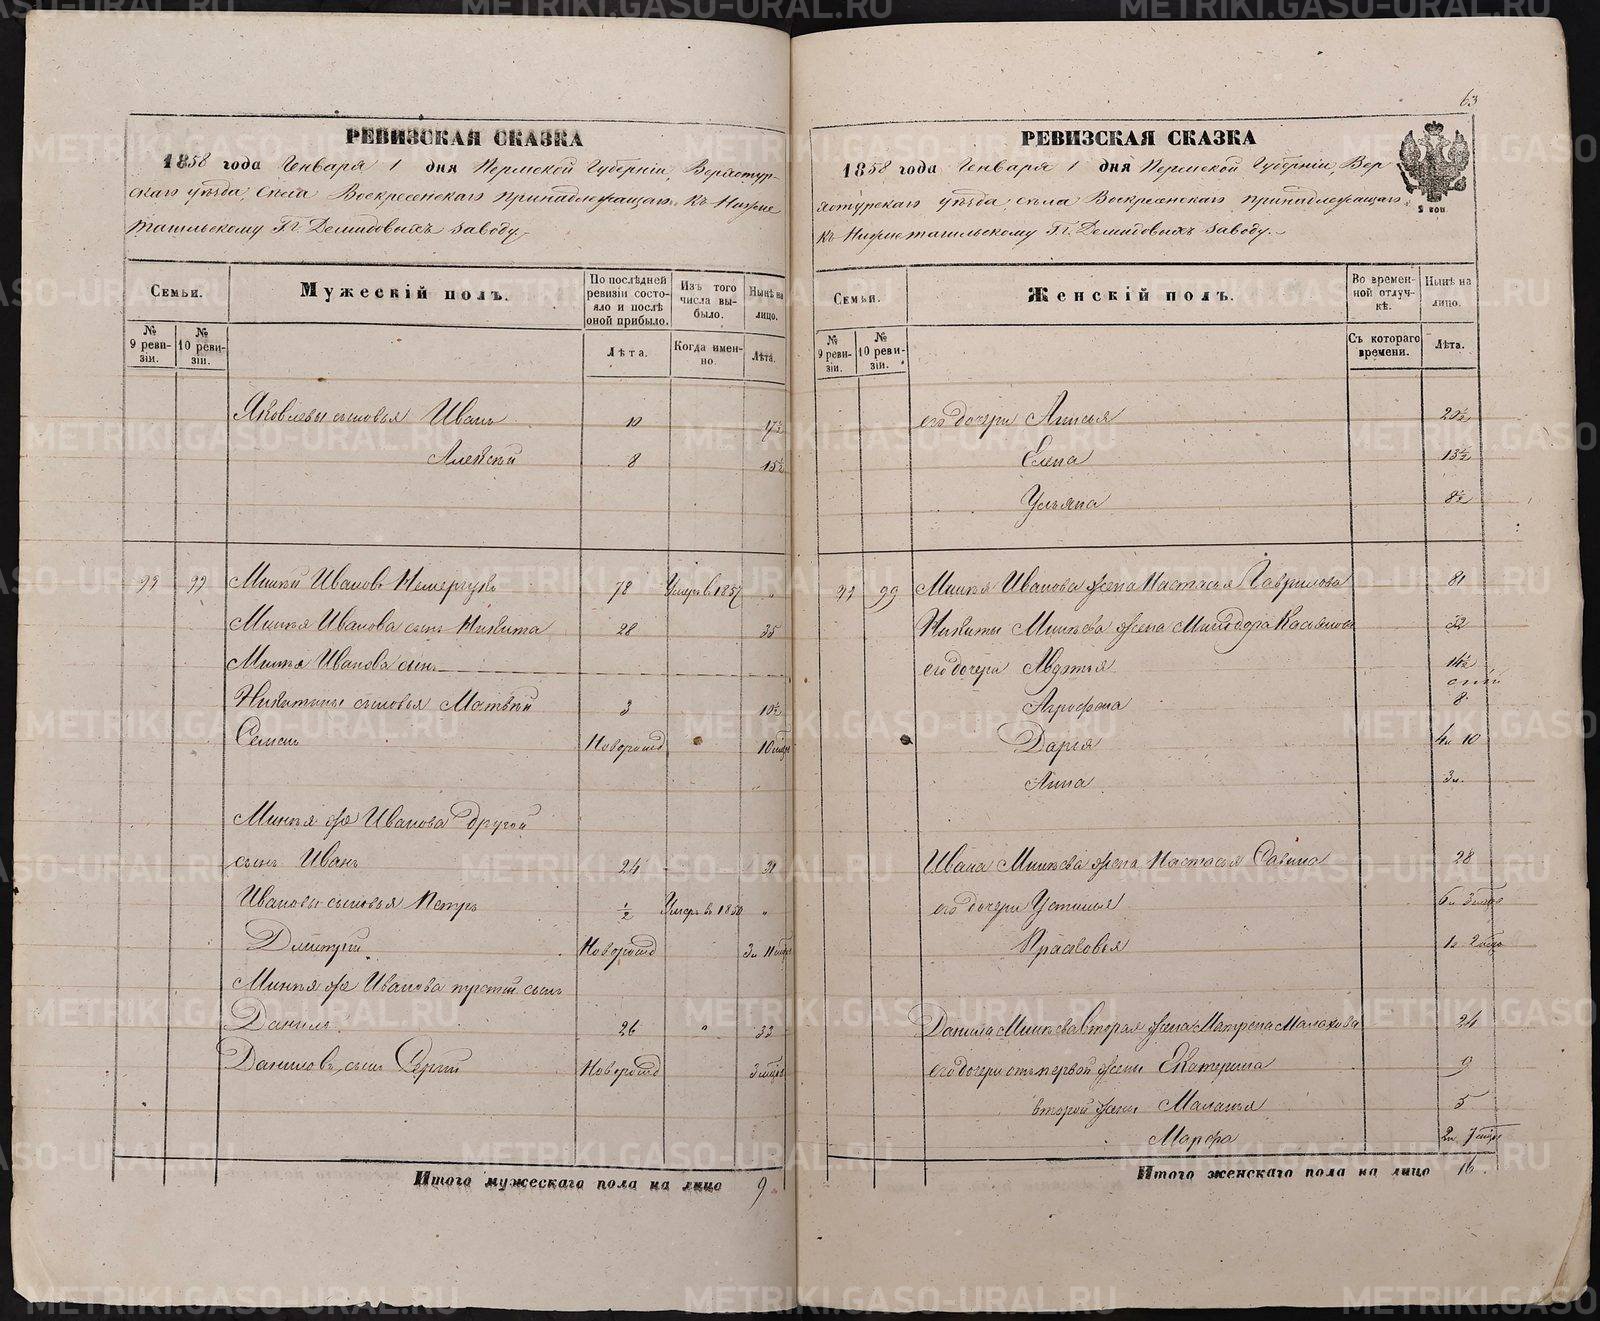 РЕВИЗСКАЯ СКАЗКА
1858 года Генваря 1 дня Пермской Губерніи, Верхотур-
скаго уѣзда, села Воскресенскаго принадлежащаго къ Нижне
тагильскому Гг. Демидовыхъ заводу.
Семьи.
Мужескій полъ.
По послѣдней ревизіи состояло и послѣ оной прибыло.
Изъ того числа выбыло.
Нынѣ на лицо.
№ 9 ревизіи.
№ 10 ревизіи.
Лѣта.
Когда именно.
Лѣта.
Яковлевы сыновья Иванъ 10 17½
Алексѣй 8 15½
99 99 Минѣй Ивановъ 78 Умеръ в 1857 "
Минѣя Иванова сынъ Никита 28 35
Минѣя Иванова сынъ
Никитины сыновья Матвѣй 3 10½
Семенъ Новорожд 10 мцов
Минѣя же Иванова другой
сынъ Иванъ 24 31
Ивановы сыновья Петръ ½ Умеръ в 1850 "
Дмитрій Новорожд 3 л 11 мцов
Минѣя же Иванова третій сынъ
Данилъ 26 " 33
Даниловъ сынъ Сергій Новорожд 3 мцов
Итого мужескаго пола на лицо 9
63
РЕВИЗСКАЯ СКАЗКА
1858 года Генваря 1 дня Пермской Губерніи, Вер-
хотурскаго уѣзда, села Воскресенскаго принадлежащаго
къ Нижнетагильскому Гг. Демидовыхъ заводу.
5 коп.
Семьи.
Женскій полъ.
Во временной отлучкѣ.
Нынѣ на лицо.
№ 9 ревизіи.
№ 10 ревизіи.
Съ котораго времени.
Лѣта.
его дочери Анисья 20½
Елена 13½
Ульяна 8½
99 99 Минѣя Иванова жена Настасья Гаврилова 81
Никиты Минѣева жена
его дочери Авдотья 14½
Агрофена 8
Дарья 4 л 10
Анна 3 л.
Ивана Минѣева жена Настасья Савина 28
его дочери Устинья 6 л 3 мцов
Прасковья 1 л 2 мцов
Данила Минѣева вторая жена Матрена Малахова 24
его дочери отъ первой жены Екатерина 9
второй жены Маланья 5
Марфа 2 л 7 мцов
Итого женскаго пола на лицо 16.
METRIKI.GASO-URAL.RU